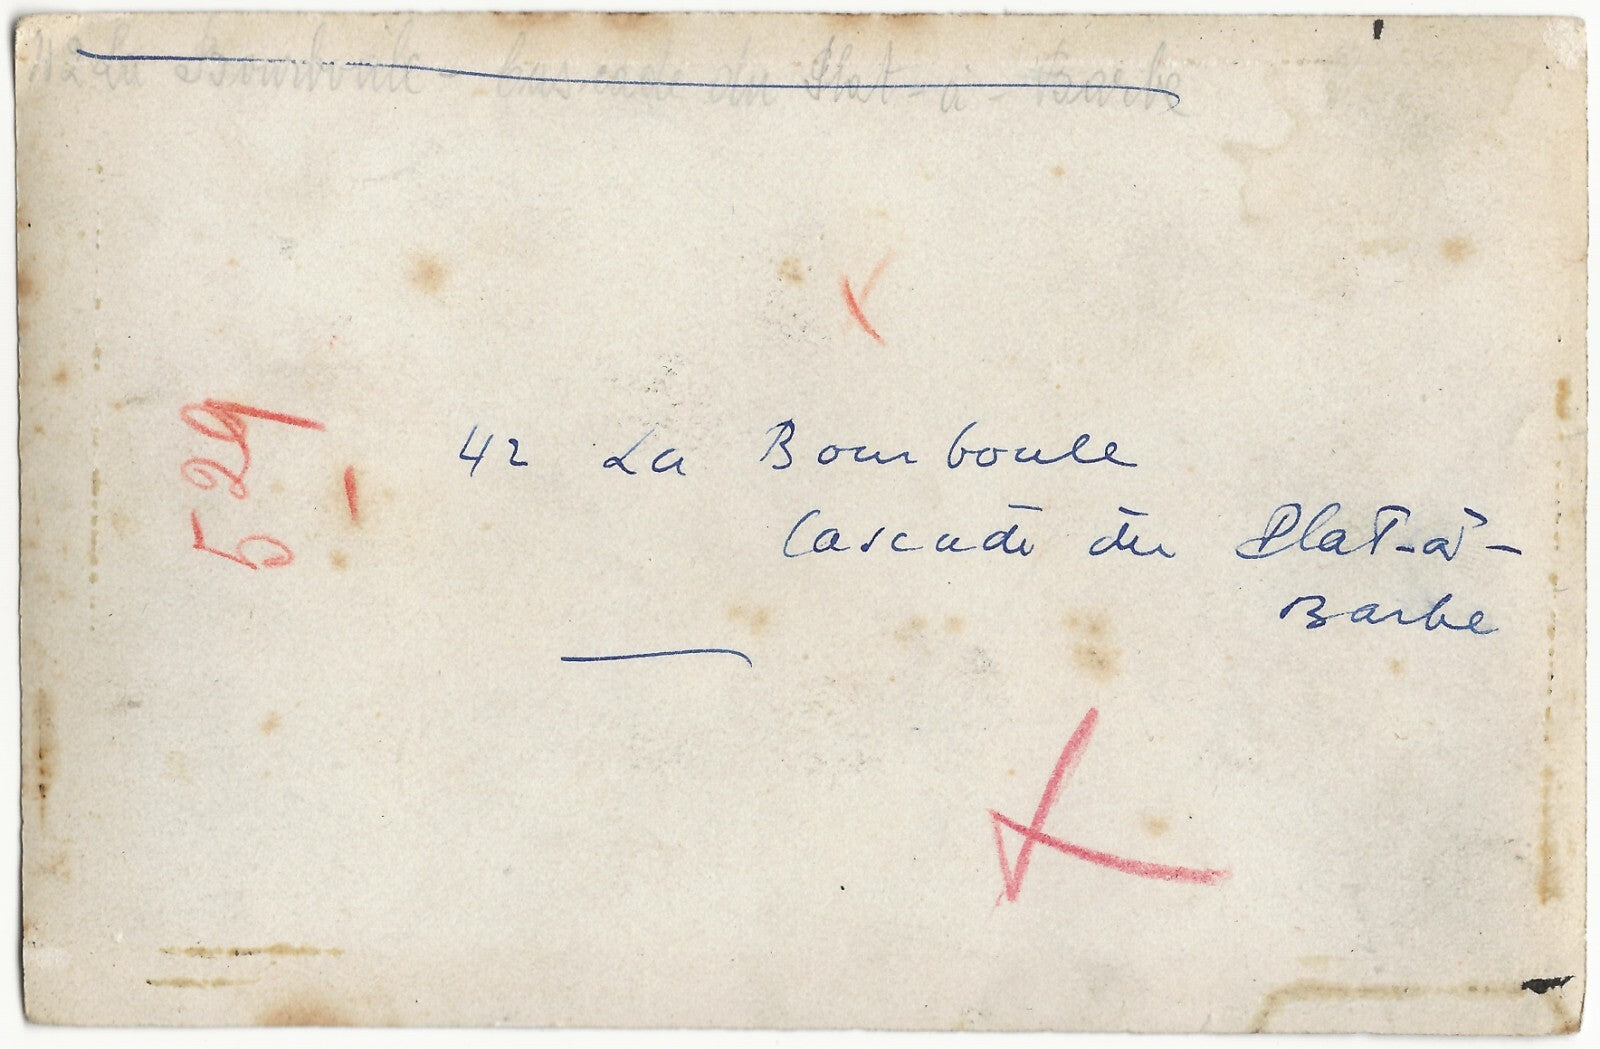 42 La Bourboule - Cascade du Plat-à-Barbe
42 La Bourboule
Cascade du Plat-à-
Barbe
529